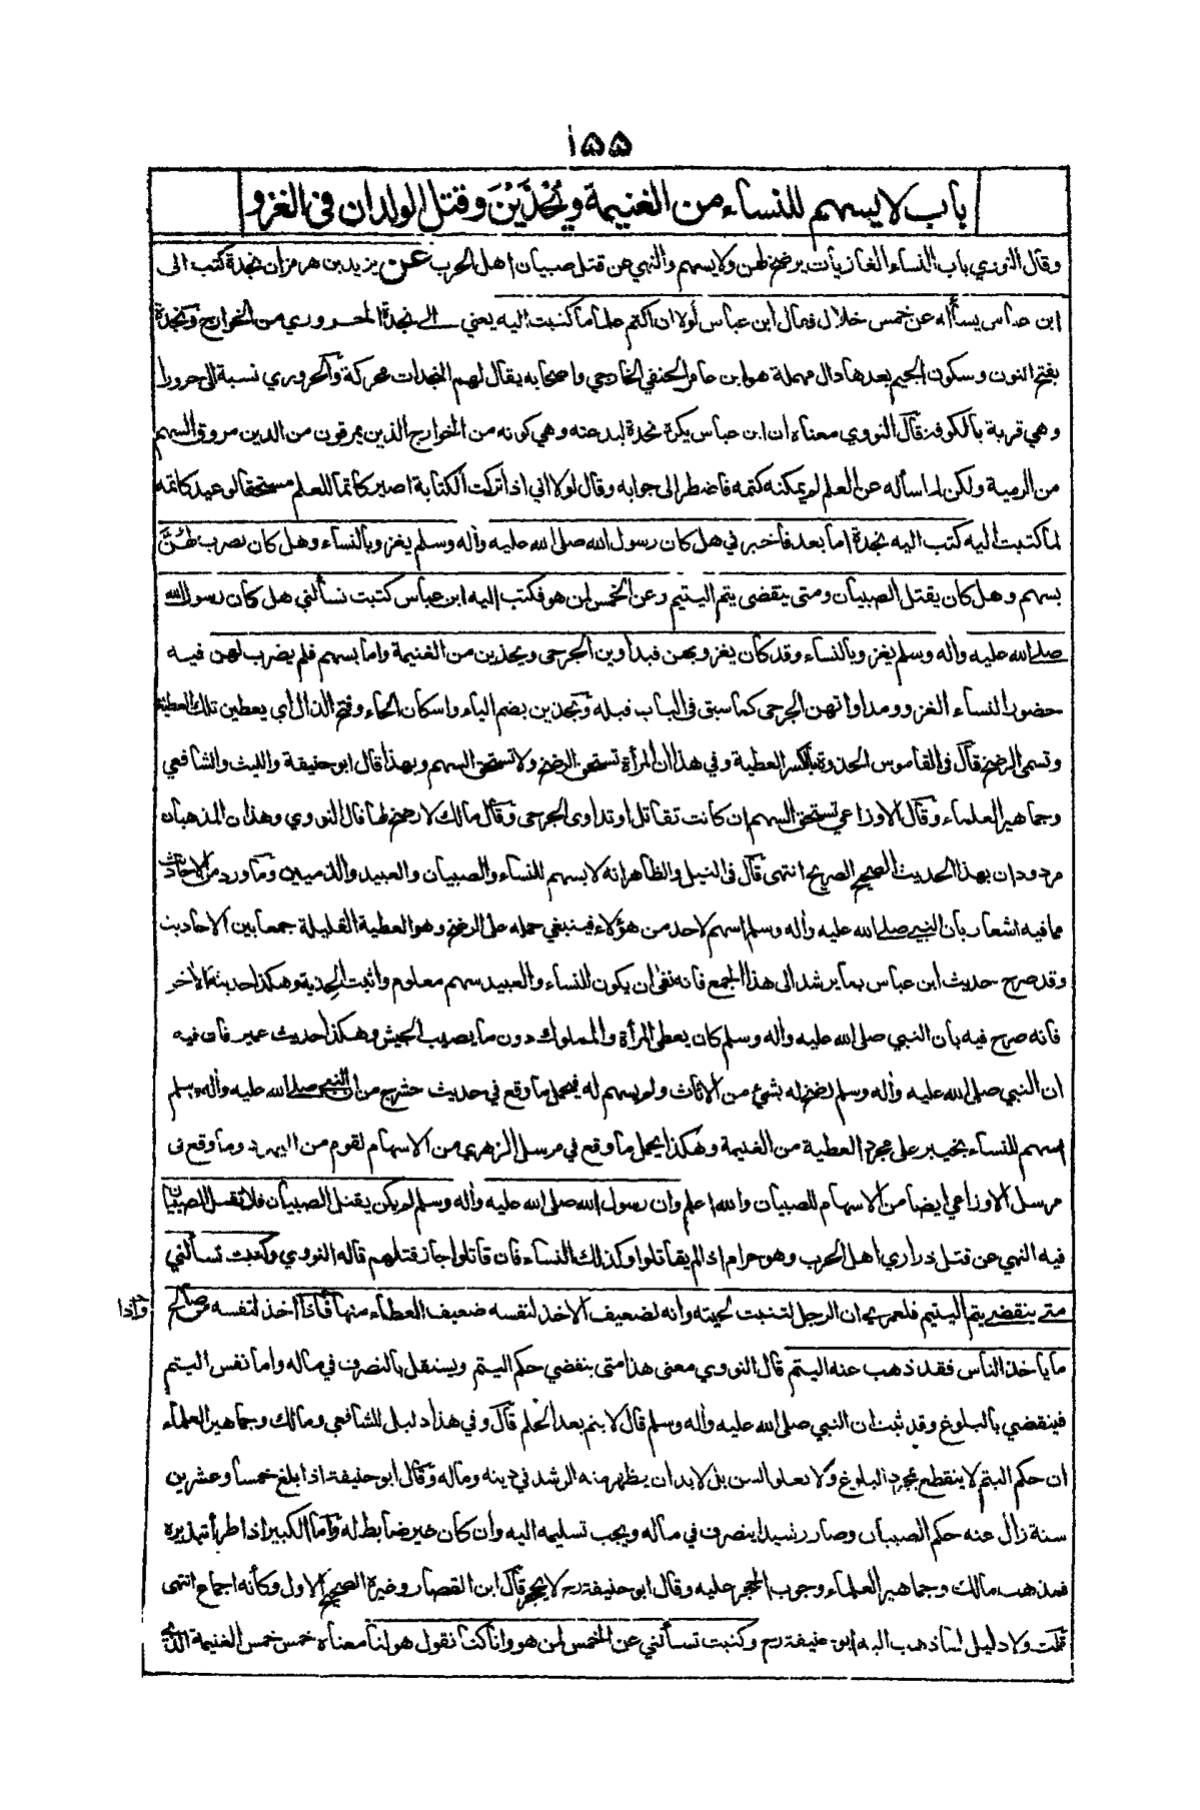 ١٥٥
باب لا يسهم للنساء من الغنيمة ويُحْذَيْنَ وقتل الولدان فى الغزو
وقال النووي باب النساء الغازيات يرضخ لهن ولا يسهم والنهي عن قتل صبيان اهل الحرب عن يزيد بن هرمز ان نجدة كتب الى
ابن عباس يسأله عن خمس خلال فقال ابن عباس لولا ان اكتم علما ما كتبت اليه يعني الى نجدة الحروري من الخوارج ونجدة
بفتح النون وسكون الجيم بعدها دال مهملة هو ابن عامر الحنفي الخارجي واصحابه يقال لهم النجدات محركة والحروري نسبة الى حرورا
وهي قرية بالكوفة قال النووي معناه ان ابن عباس يكره نجدة لبدعته وهي كونه من الخوارج الذين يمرقون من الدين مروق السهم
من الرمية ولكن لما سأله عن العلم لم يمكنه كتمه فاضطر الى جوابه وقال لولا اني اذا تركت الكتابة اصير كاتما للعلم مستحقا لوعيد كاتمه
لما كتبت اليه كتب اليه نجدة اما بعد فأخبرني هل كان رسول الله صلى الله عليه وأله وسلم يغزو بالنساء وهل كان يضرب لهُنَّ
بسهم وهل كان يقتل الصبيان ومتى ينقضى يتم اليتيم وعن الخمس لمن هو فكتب اليه ابن عباس كتبت تسألني هل كان رسول الله
صلى الله عليه وأله وسلم يغزو بالنساء وقد كان يغزو بهن فيداوين الجرحى ويحذين من الغنيمة واما بسهم فلم يضرب لهن فيه
حضور النساء الغزو ومداواتهن الجرحى كما سبق فى الباب قبله ويحذين بضم الياء واسكان الحاء وفتح الذال اي يعطين تلك العطية
وتسمى الرضخ قال فى القاموس الحذوة بالكسر العطية وفي هذا ان المرأة تستحق الرضخ ولا تستحق السهم وبهذا قال ابو حنيفة والليث والشافعي
وجماهير العلماء وقال الاوزاعي تستحق السهم ان كانت تقاتل او تداوى الجرحى وقال مالك لا رضخ لها قال النووي وهذان المذهبان
مردودان بهذا الحديث الصحيح الصريح انتهى قال فى النيل والظاهر انه لا يسهم للنساء والصبيان والعبيد والذميين وما ورد من الاحاديث
مما فيه اشعار بان النبي صلى الله عليه وأله وسلم اسهم لاحد من هؤلاء فينبغي حمله على الرضخ وهو العطية القليلة جمعا بين الاحاديث
وقد صرح حديث ابن عباس بما يرشد الى هذا الجمع فانه نفى ان يكون للنساء والعبيد سهم معلوم واثبت الحذية وهكذا حديثه الأخر
فانه صرح فيه بأن النبي صلى الله عليه وأله وسلم كان يعطى المرأة والمملوك دون ما يصيب الجيش وهكذا حديث عمير فان فيه
ان النبي صلى الله عليه وأله وسلم رضخ له بشئ من الاثاث ولم يسهم له فيحمل ما وقع في حديث حشرج من ان النبي صلى الله عليه وأله وسلم
اسهم للنساء بخيبر على مجرد العطية من الغنيمة وهكذا يحمل ما وقع في مرسل الزهري من الاسهام لقوم من اليهود وما وقع فى
مرسل الاوزاعي ايضا من الاسهام للصبيان والله اعلم وان رسول الله صلى الله عليه وأله وسلم لم يكن يقتل الصبيان فلا تقتل الصبيان
فيه النهي عن قتل ذراري اهل الحرب وهو حرام اذا لم يقاتلوا وكذلك النساء فان قاتلوا جاز قتلهم قاله النووي وكتبت تسألني
متى ينقضي يتم اليتيم فلعمري ان الرجل لتنبت لحيته وانه لضعيف الاخذ لنفسه ضعيف العطاء منها فاذا اخذ لنفسه من صالح
واذا
ما يأخذ الناس فقد ذهب عنه اليتم قال النووي معنى هذا متى ينقضي حكم اليتم ويستقل بالتصرف في ماله واما نفس اليتم
فينقضي بالبلوغ وقد ثبت ان النبي صلى الله عليه وأله وسلم قال لا يتم بعد الحلم قال وفي هذا دليل للشافعي ومالك وجماهير العلماء
ان حكم اليتم لا ينقطع بمجرد البلوغ ولا بعلو السن بل لا بد ان يظهر منه الرشد في دينه وماله وقال ابو حنيفة اذا بلغ خمسا وعشرين
سنة زال عنه حكم الصبيان وصار رشيدا يتصرف في ماله ويجب تسليمه اليه وان كان غير ضابط له وأما الكبير اذا طرأ تبذيره
فمذهب مالك وجماهير العلماء وجوب الحجر عليه وقال ابو حنيفة رح لا يحجر قال ابن القصار وغيره الصحيح الاول وكأنه اجماع انتهى
قلت ولا دليل لما ذهب اليه ابو حنيفة رح وكتبت تسألني عن الخمس لمن هو وانا كنا نقول هو لنا معناه خمس خمس الغنيمة الذي